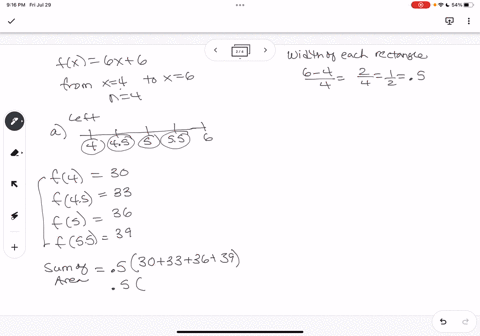 9:16 PM Fri Jul 29
54%
3/4
f(x) = 6x+6
from x=4 to x=6
n=4
Width of each rectangle
6-4/4 = 2/4 = 1/2 = .5
a) Left
4 4.5 5 5.5 6
f(4) = 30
f(4.5) = 33
f(5) = 36
f(5.5) = 39
Sum of Area = .5(30+33+36+39)
.5(